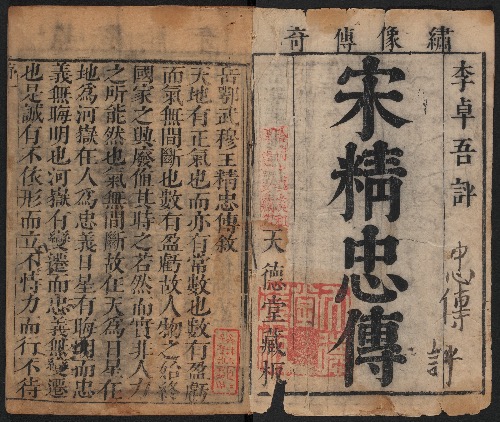 繡像傳奇
李卓吾評
宋精忠傳
天德堂藏板
忠傳
評
岳鄂武穆王精忠傳敘
天地有正氣也而亦有常數也數有盈虧
而氣無間斷也數有盈虧故人物之始終
國家之興廢循其時之若然而實非人力
之所能然也氣無間斷故在天為日星在
地為河嶽在人為忠義日星有晦明而忠
義無晦明也河嶽有變遷而忠義無變遷
也是誠有不依形而立不恃力而行不待